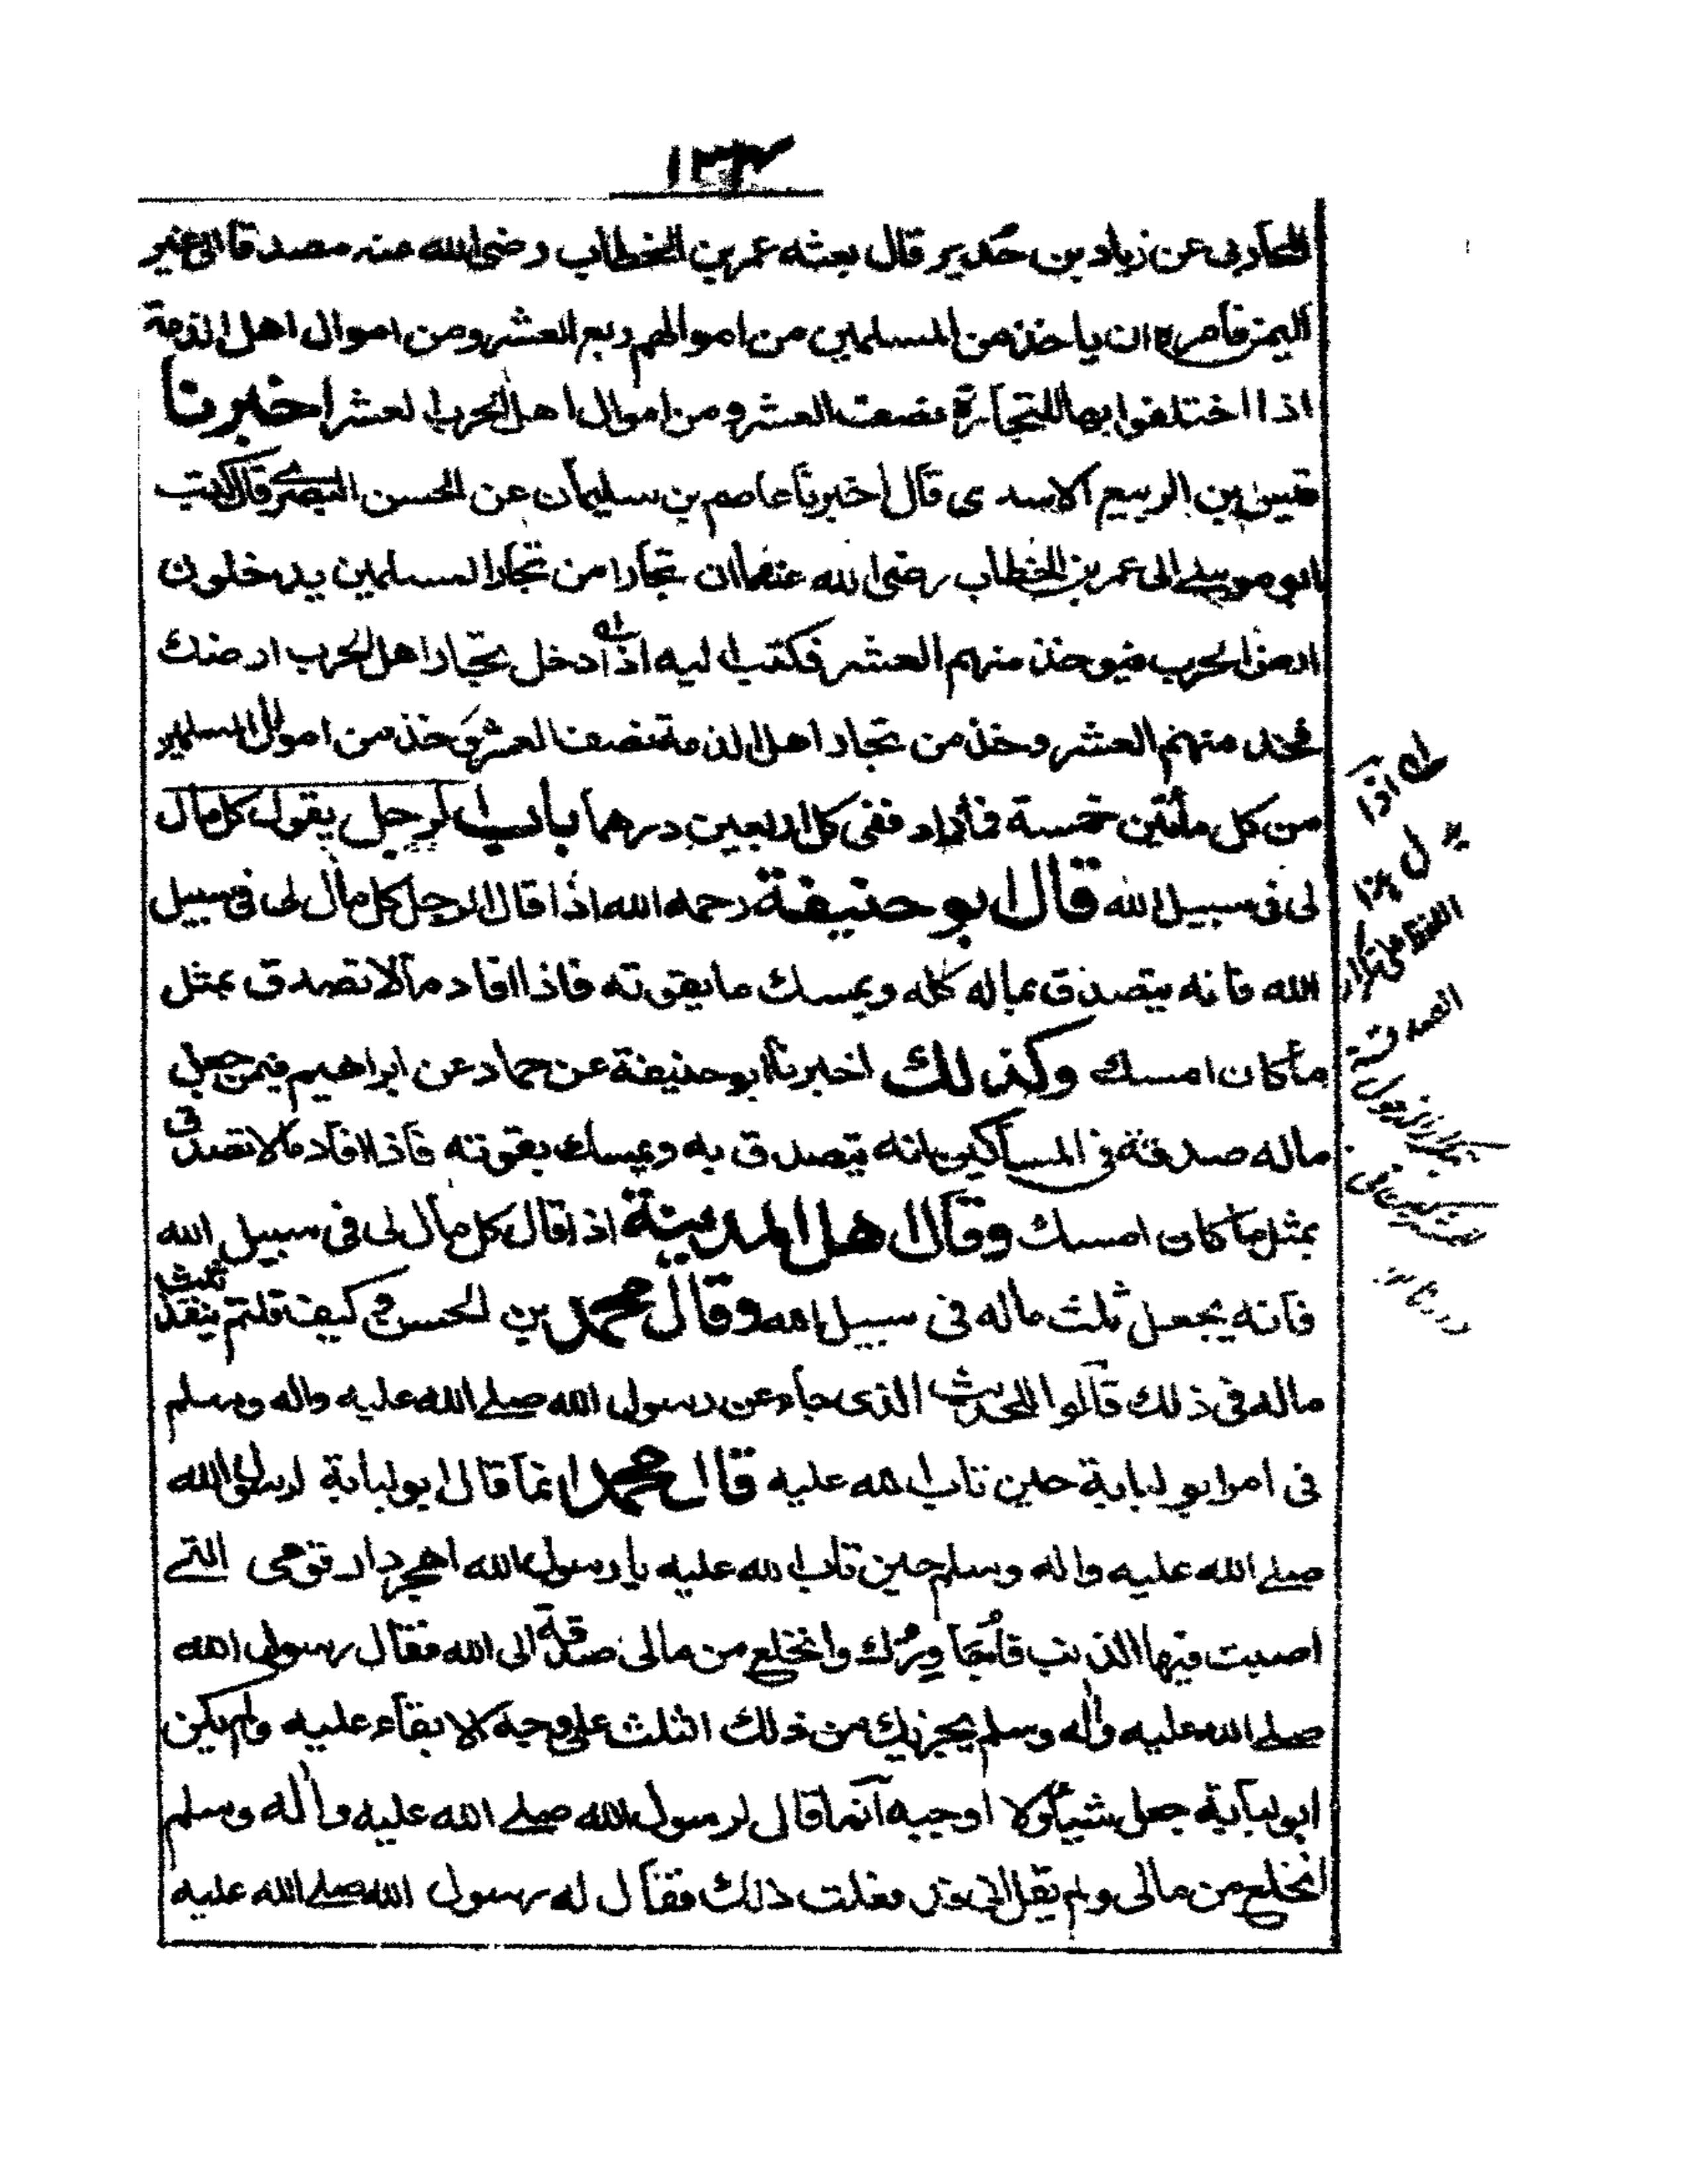 ١٣٤
المحاربى عن زياد بن حُدير قال بعثه عمر بن الخطاب رضى الله عنه مصدقا الى عين
التمر فأمره ان ياخذ من المسلمين من اموالهم ربع العشر ومن اموال اهل الذمة
اذا اختلفوا بها للتجارة نصف العشر ومن اموال اهل الحرب العشر اخبرنا
قيس بن الربيع الاسدى قال اخبرنا عاصم بن سليمان عن الحسن البصرى قال كتب
ابو موسى الى عمر بن الخطاب رضى الله عنهما ان تجارا من تجار المسلمين يدخلون
ارض الحرب فيوخذ منهم العشر فكتب اليه اذا دخل تجار اهل الحرب ارضك
فخذ منهم العشر وخذ من تجار اهل الذمة نصف العشر وخذ من اموال المسلمين
من كل مأتين خمسة فما زاد ففى كل اربعين درهما باب الرجل يقول كل مال
لى فى سبيل الله قال ابو حنيفة رحمه الله اذا قال الرجل كل مال لى فى سبيل
الله فانه يتصدق بماله كله ويمسك ما يقوته فاذا افاد مالا تصدق بمثل
ما كان امسك وكذلك اخبرنا ابو حنيفة عن حماد عن ابراهيم فيمن جعل
ماله صدقة فى المساكين انه يتصدق به ويمسك بقوته فاذا افاد مالا تصدق
بمثل ما كان امسك وقال اهل المدينة اذا قال كل مال لى فى سبيل الله
فانه يجعل ثلث ماله فى سبيل الله وقال محمد بن الحسن كيف قلتم ينفذ ثلث
ماله فى ذلك قالوا للحديث الذى جاء عن رسول الله صلى الله عليه واله وسلم
فى امر ابو لبابة حين تاب الله عليه قال محمد انما قال ابو لبابة لرسول الله
صلى الله عليه واله وسلم حين تاب الله عليه يا رسول الله اهجر دار قومى التى
اصبت فيها الذنب فأجاورك وانخلع من مالى صدقة الى الله فقال رسول الله
صلى الله عليه واله وسلم يجزيك من ذلك الثلث على وجه الابقاء عليه ولم يكن
ابو لبابة جعل شيئا ولا اوجبه انما قال لرسول الله صلى الله عليه واله وسلم
انخلع من مالى ولم يقل انى قد فعلت ذلك فقال له رسول الله صلى الله عليه